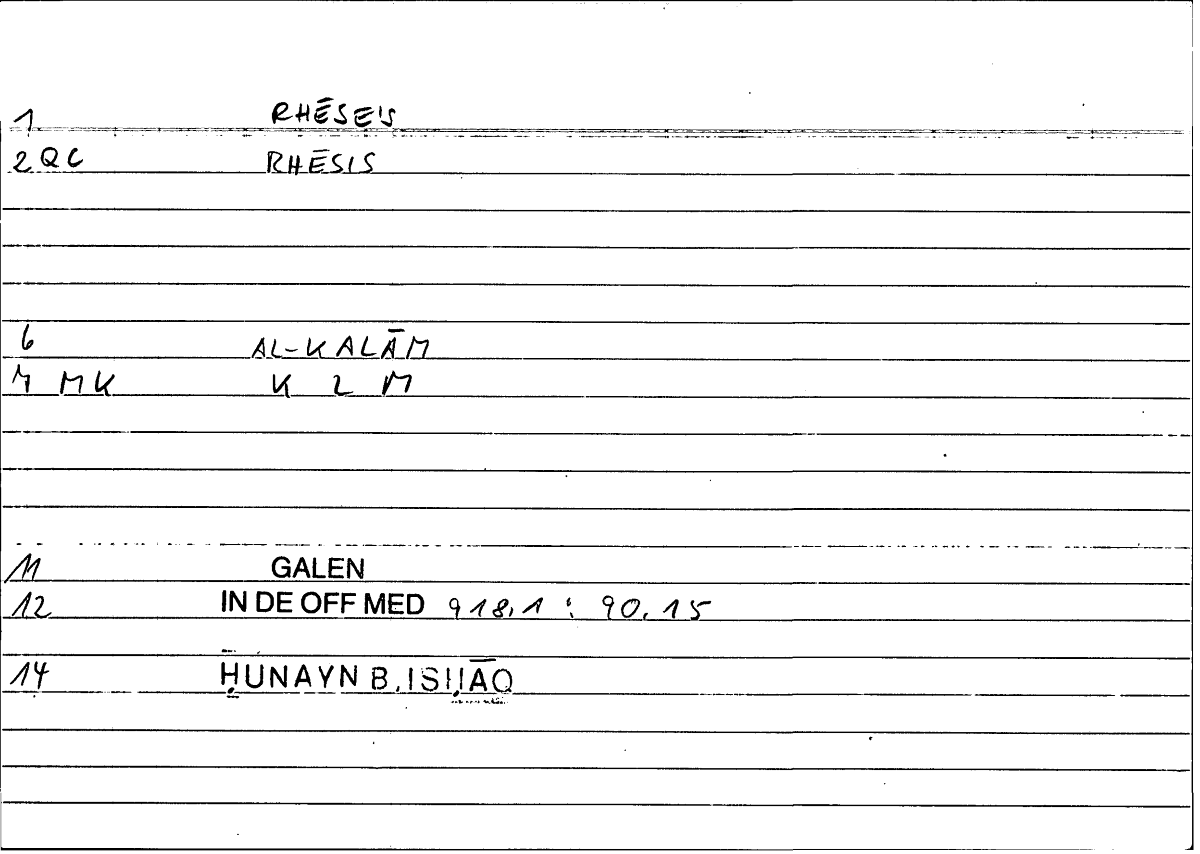 1 RHĒSEIS
2 QC RHĒSIS
6 AL-KALĀM
7 MK K L M
11 GALEN
12 IN DE OFF MED 918,1 : 90,15
14 ḤUNAYN B. ISḤĀQ